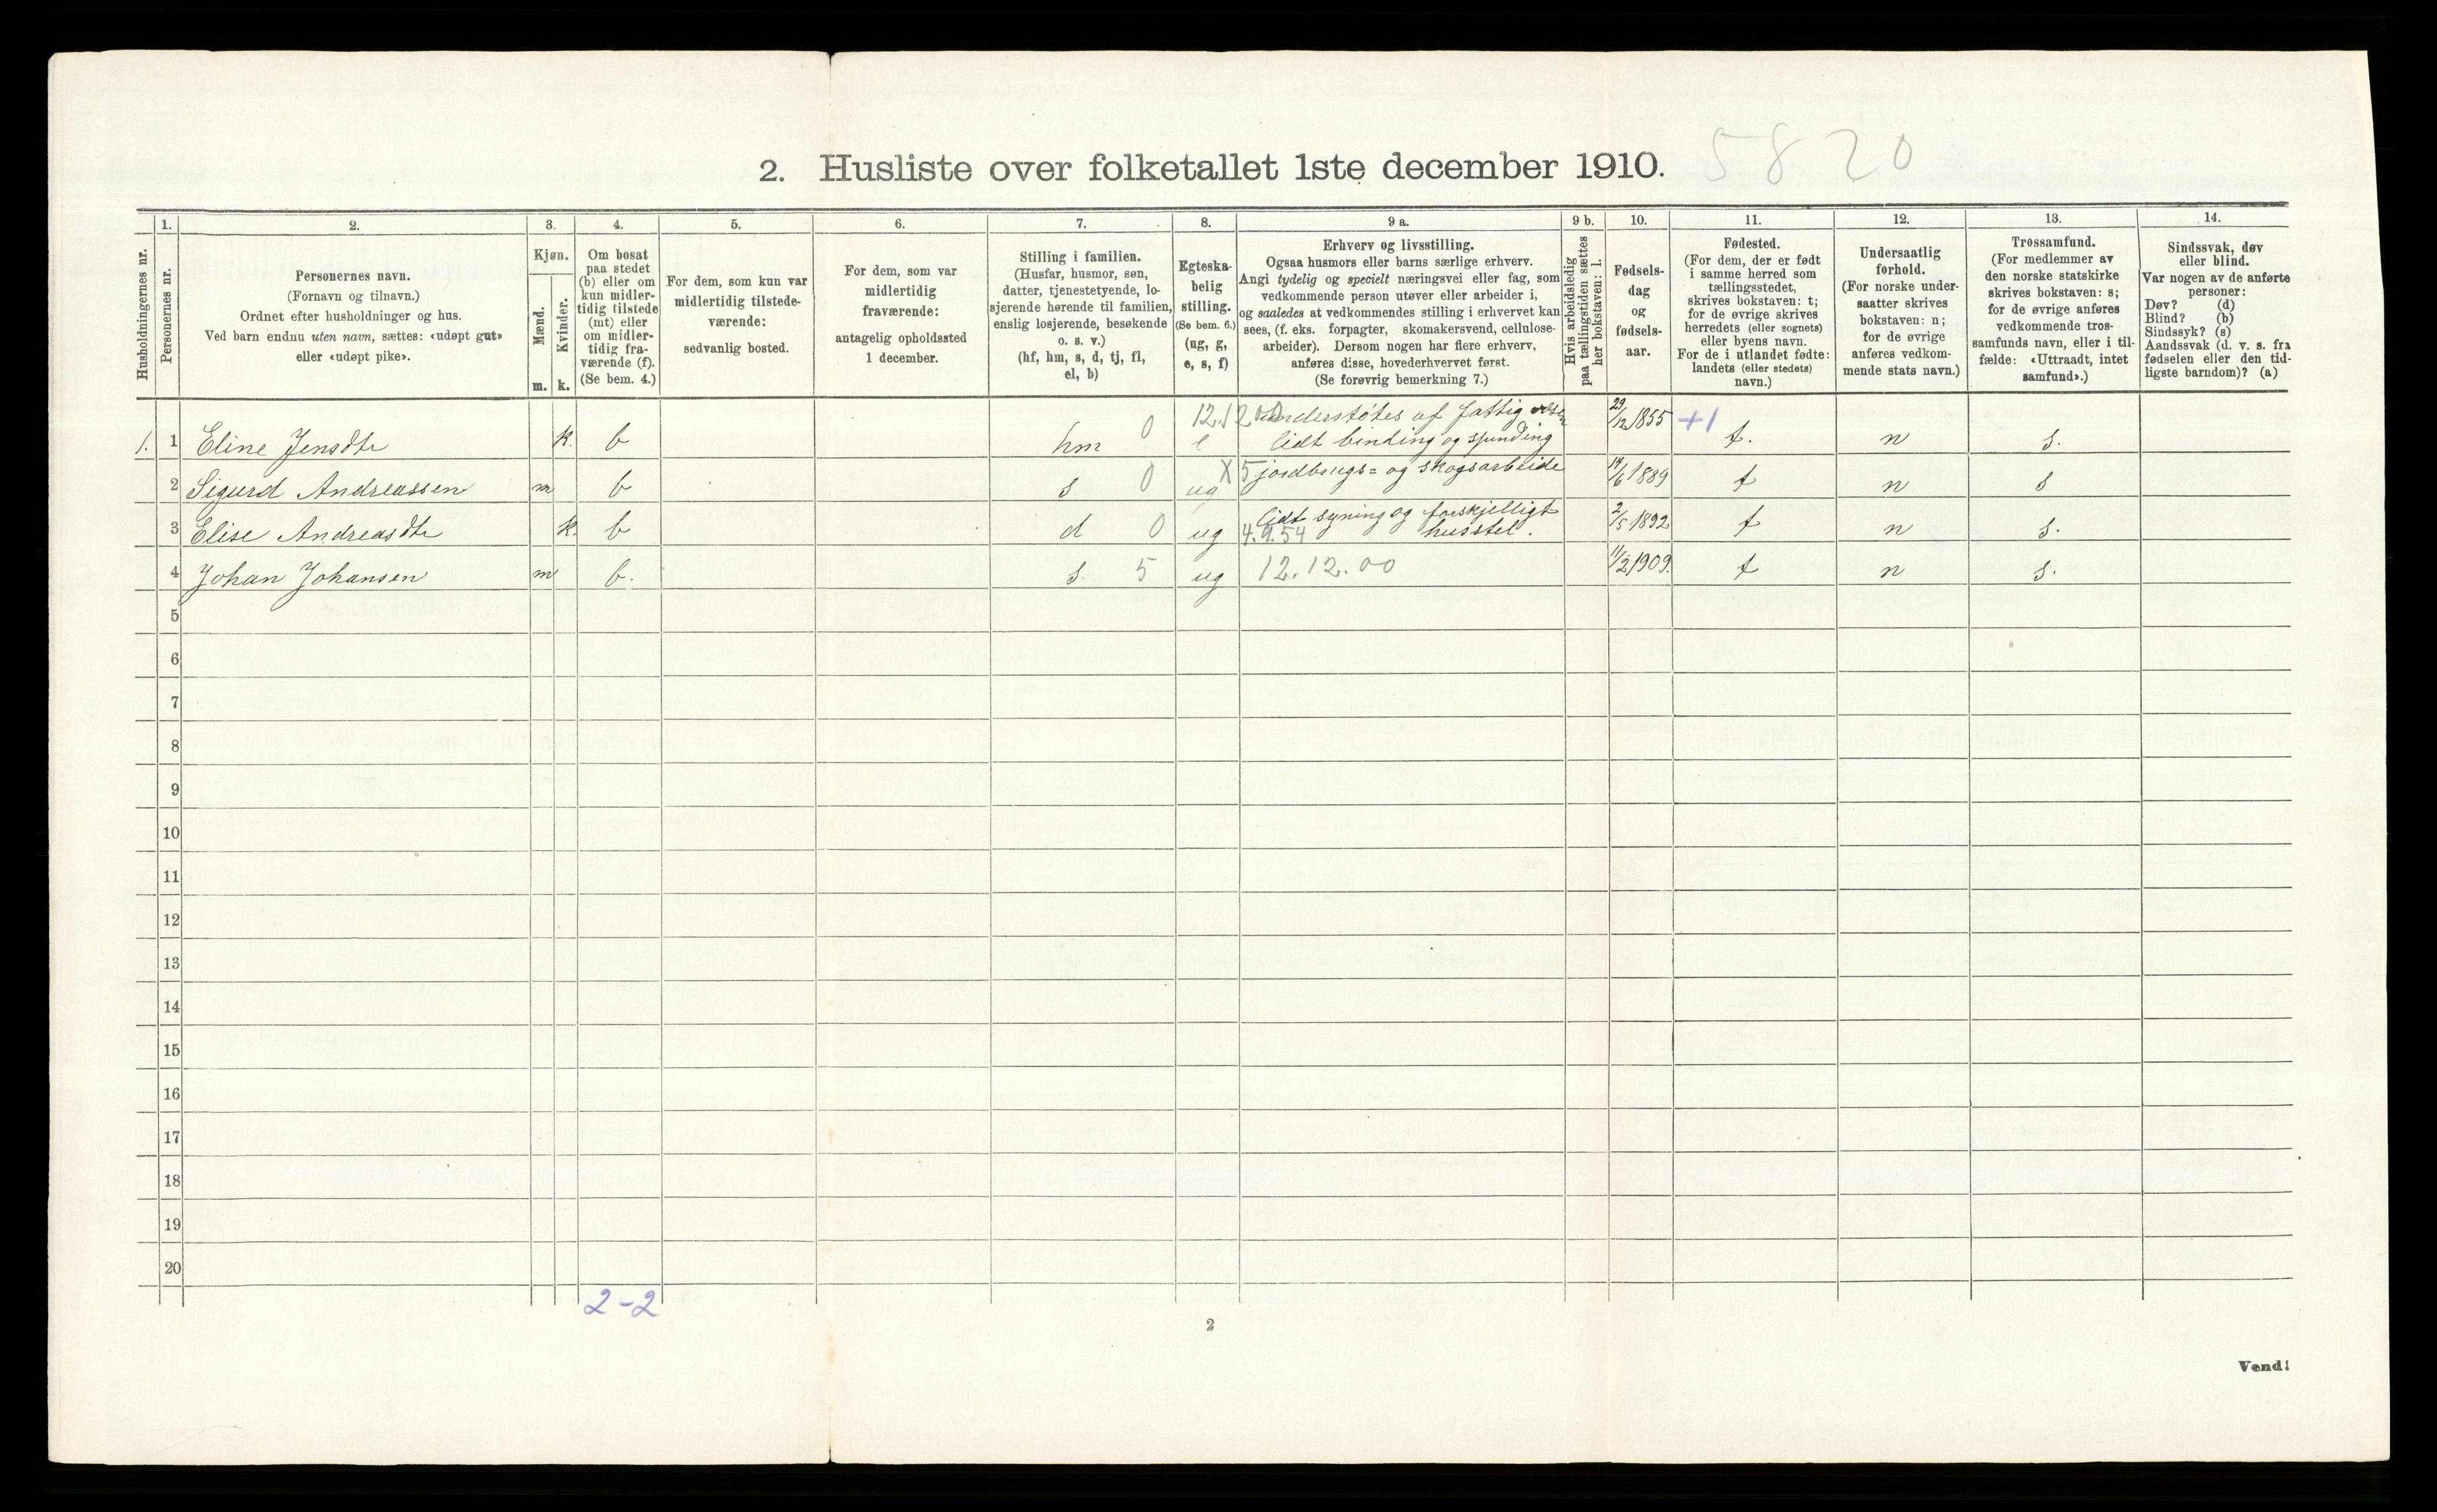 2. Husliste over folketallet 1ste december 1910. 5820
Husholdningernes nr.
1.
Personernes nr.
2.
Personernes navn.
(Fornavn og tilnavn.)
Ordnet efter husholdninger og hus.
Ved barn endnu uten navn, sættes: «udøpt gut»
eller «udøpt pike».
3.
Kjøn.
Mænd.
m.
Kvinder.
k.
4.
Om bosat
paa stedet
(b) eller om
kun midler-
tidig tilstede
(mt) eller
om midler-
tidig fra-
værende (f).
(Se bem. 4.)
5.
For dem, som kun var
midlertidig tilstede-
værende:
sedvanlig bosted.
6.
For dem, som var
midlertidig
fraværende:
antagelig opholdssted
1 december.
7.
Stilling i familien.
(Husfar, husmor, søn,
datter, tjenestetyende, lo-
sjerende hørende til familien,
enslig losjerende, besøkende
o. s. v.)
(hf, hm, s, d, tj, fl,
el, b)
8.
Egteska-
belig
stilling.
(Se bem. 6.)
(ug, g,
e, s, f)
9 a.
Erhverv og livsstilling.
Ogsaa husmors eller barns særlige erhverv.
Angi tydelig og specielt næringsvei eller fag, som
vedkommende person utøver eller arbeider i,
og saaledes at vedkommendes stilling i erhvervet kan
sees, (f. eks. forpagter, skomakersvend, cellulose-
arbeider). Dersom nogen har flere erhverv,
anføres disse, hovederhvervet først.
(Se forøvrig bemerkning 7.)
9 b.
Hvis arbeidsledig
paa tællingstiden sættes
her bokstaven: l.
10.
Fødsels-
dag
og
fødsels-
aar.
11.
Fødested.
(For dem, der er født
i samme herred som
tællingsstedet,
skrives bokstaven: t;
for de øvrige skrives
herredets (eller sognets)
eller byens navn.
For de i utlandet fødte:
landets (eller stedets)
navn.)
12.
Undersaatlig
forhold.
(For norske under-
saatter skrives
bokstaven: n;
for de øvrige
anføres vedkom-
mende stats navn.)
13.
Trossamfund.
(For medlemmer av
den norske statskirke
skrives bokstaven: s;
for de øvrige anføres
vedkommende tros-
samfunds navn, eller i til-
fælde: «Uttraadt, intet
samfund».)
14.
Sindssvak, døv
eller blind.
Var nogen av de anførte
personer:
Døv? (d)
Blind? (b)
Sindssyk? (s)
Aandssvak (d. v. s. fra
fødselen eller den tid-
ligste barndom)? (a)
12.12.00 understøtes af fattigvesen 29/12 1855 +1
1. 1 Eline Jensdtr k. b hm 0 e lidt binding og spinding t. n s.
2 Sigurd Andreassen m b s 0 ug X 5 jordbrugs= og skogsarbeide 14/6 1889 t n s
lidt syning og forskjelligt
3 Elise Andreasdtr k. b d 0 ug 4.9.54 husstel. 2/5 1892 t n s.
4 Johan Johansen m b. s. 5 ug 12.12.00 11/2 1909. t n s.
5
6
7
8
9
10
11
12
13
14
15
16
17
18
19
20
2-2
2
Vend!